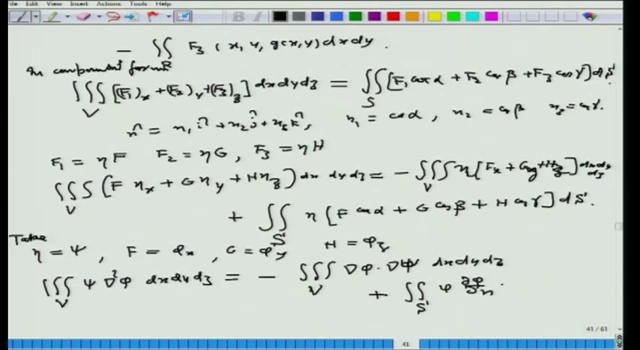 View Insert Actions Tools Help
− ∬_R F₃ (x, y, g(x,y)) dx dy.
In component form
∭_V [(F₁)_x + (F₂)_y + (F₃)_z] dx dy dz = ∬_S [F₁ cos α + F₂ cos β + F₃ cos γ] dS
n̂ = n₁ î + n₂ ĵ + n₃ k̂, n₁ = cos α, n₂ = cos β n₃ = cos γ.
F₁ = ηF F₂ = ηG, F₃ = ηH
∭_V (F η_x + G η_y + H η_z) dx dy dz = − ∭_V η [F_x + G_y + H_z] dx dy dz
+ ∬_S η [F cos α + G cos β + H cos γ] dS.
Take
η = ψ, F = φ_x, G = φ_y H = φ_z
∭_V ψ ∇²φ dx dy dz = − ∭_V ∇φ · ∇ψ dx dy dz
+ ∬_S φ ∂φ/∂n.
41 / 61
41